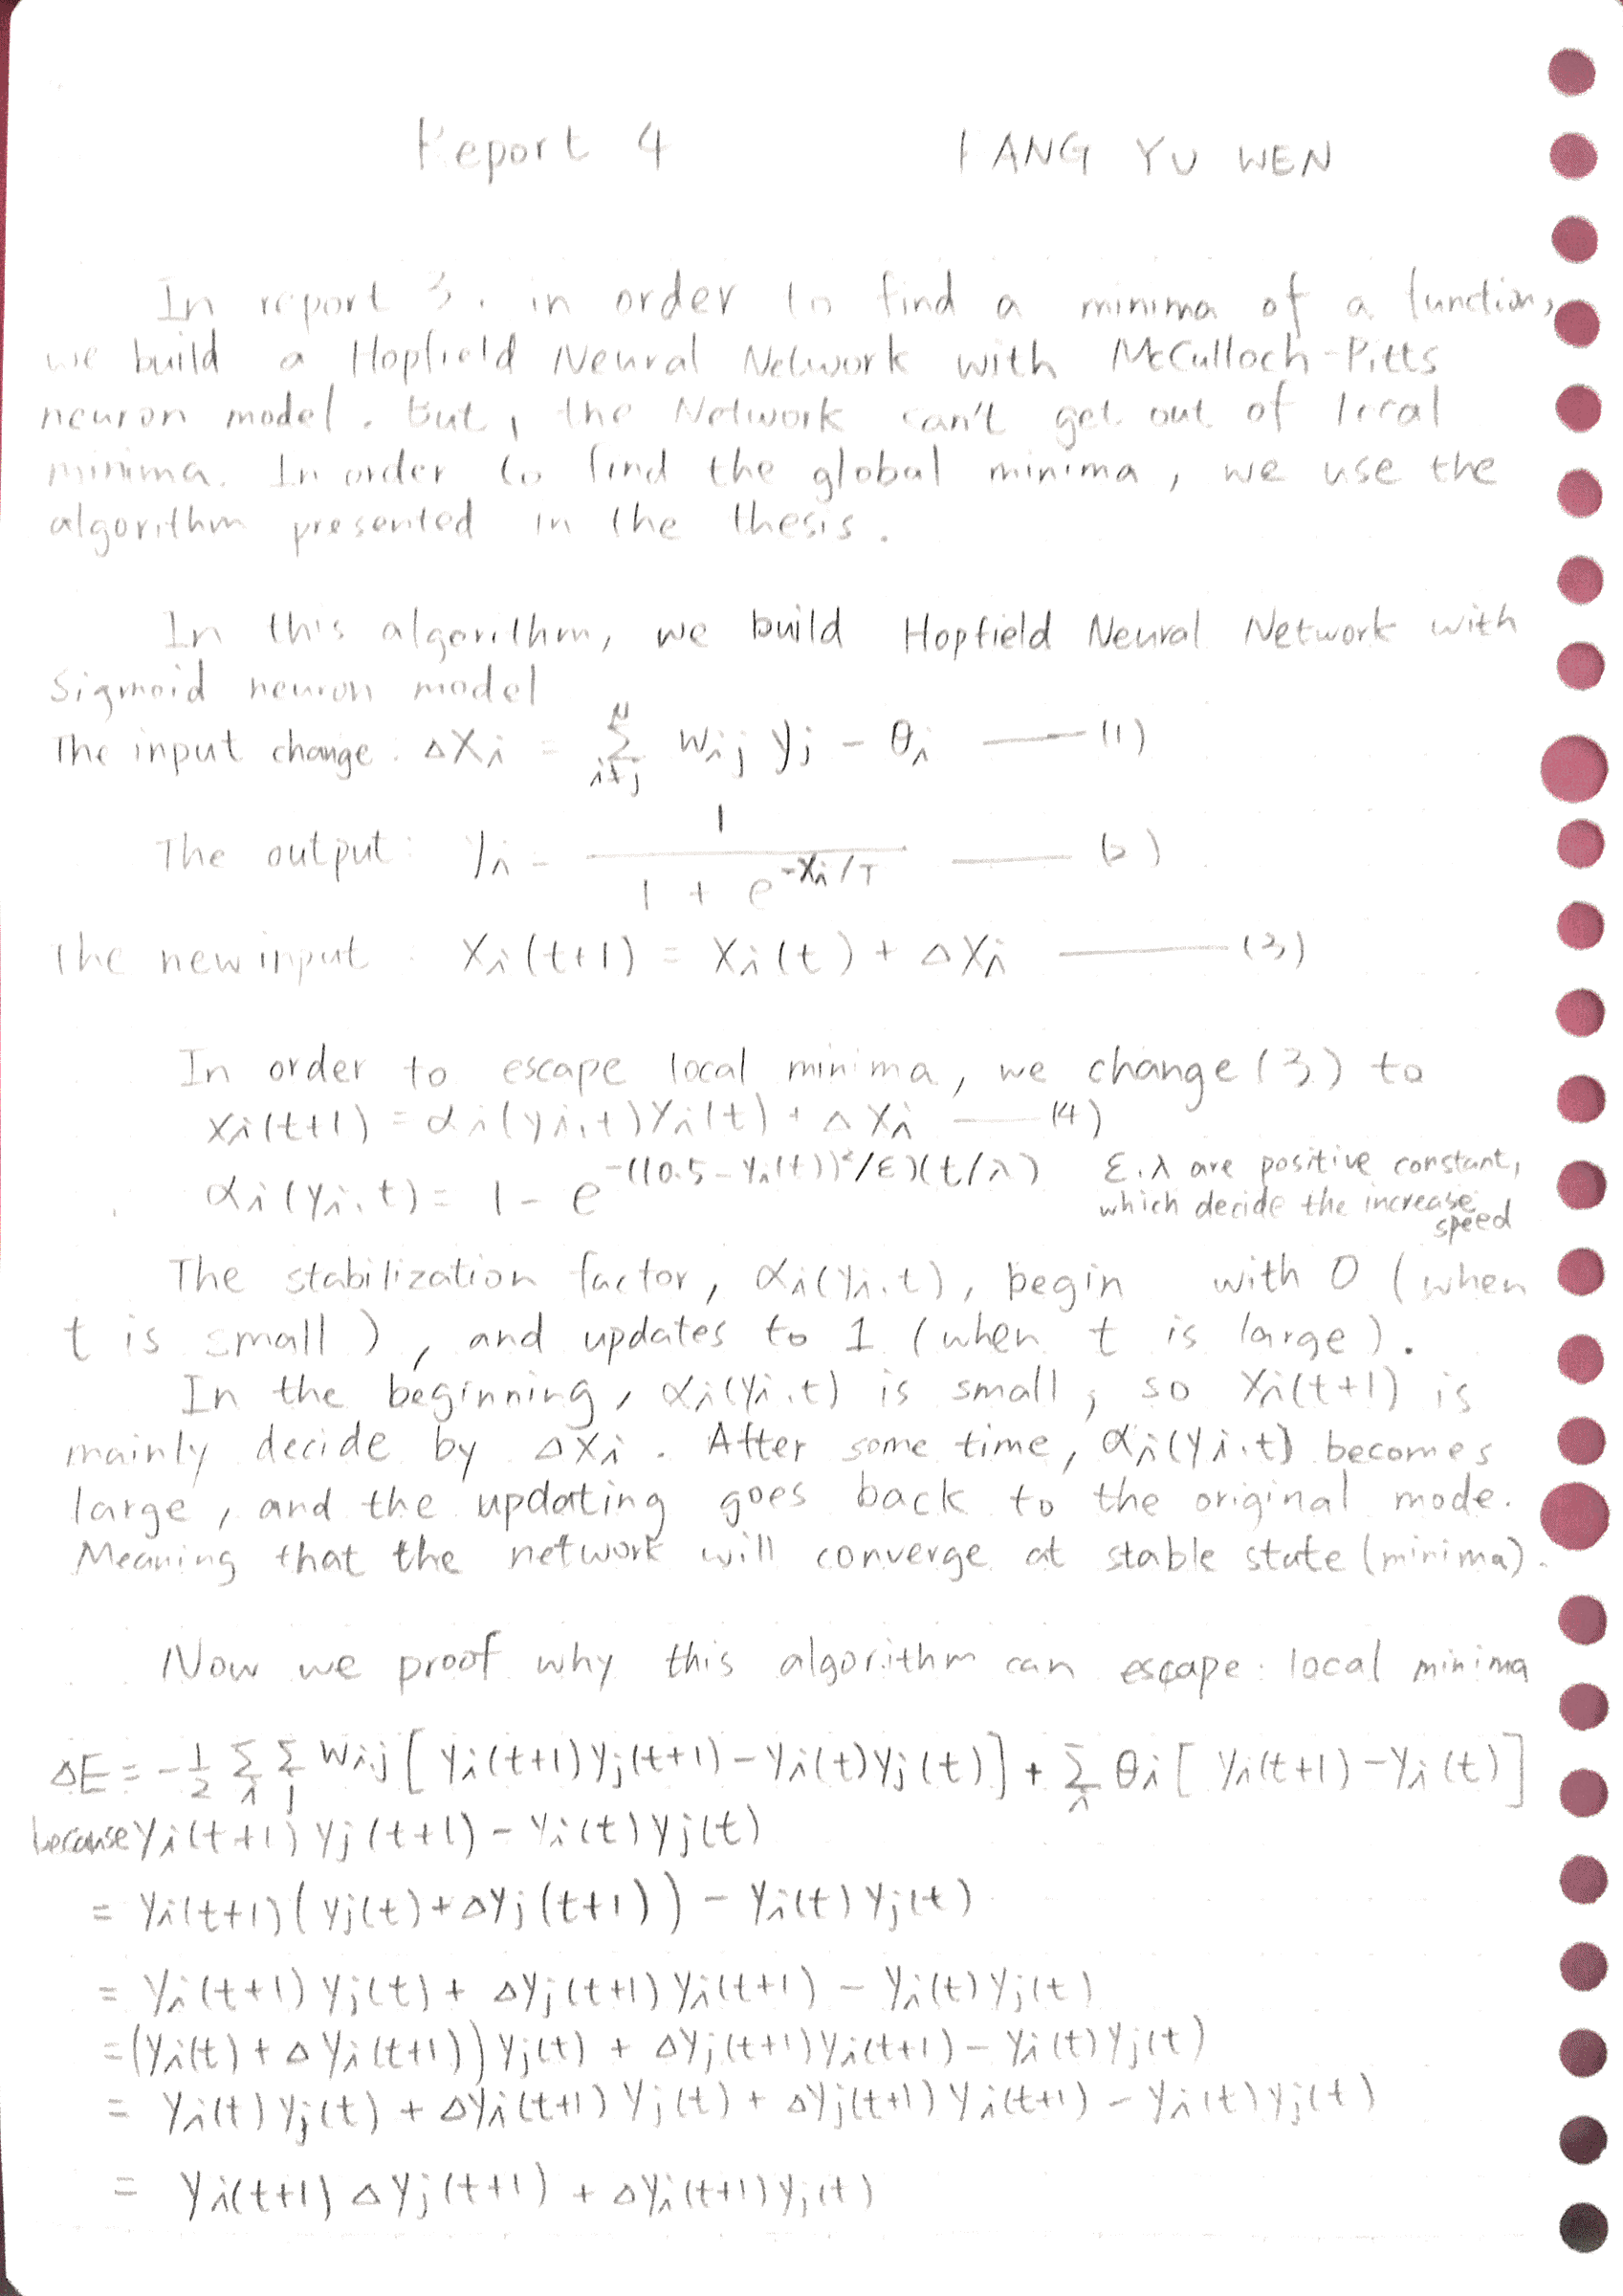 Report 4 FANG YU WEN
In report 3, in order to find a minima of a function,
we build a Hopfield Neural Network with McCulloch-Pitts
neuron model. But, the Network can't get out of local
minima. In order to find the global minima, we use the
algorithm presented in the thesis.
In this algorithm, we build Hopfield Neural Network with
Sigmoid neuron model
The input change: ΔXi = Σ_{i≠j}^{N} Wij yj - θi —— (1)
The output: yi = 1 / (1 + e^{-Xi/T}) —— (2)
The new input: Xi(t+1) = Xi(t) + ΔXi —— (3)
In order to escape local minima, we change (3) to
Xi(t+1) = αi(yi,t)Xi(t) + ΔXi —— (4)
αi(yi,t) = 1 - e^{-((0.5-yi(t))²/ε)(t/λ)} ε,λ are positive constant,
which decide the increase
speed
The stabilization factor, αi(yi,t), begin with 0 (when
t is small), and updates to 1 (when t is large).
In the beginning, αi(yi,t) is small, so Xi(t+1) is
mainly decide by ΔXi. After some time, αi(yi,t) becomes
large, and the updating goes back to the original mode.
Meaning that the network will converge at stable state (minima).
Now we proof why this algorithm can escape local minima
ΔE = -1/2 Σ_i Σ_j Wij [yi(t+1)yj(t+1) - yi(t)yj(t)] + Σ_i θi [yi(t+1) - yi(t)]
because yi(t+1)yj(t+1) - yi(t)yj(t)
= yi(t+1)(yj(t)+Δyj(t+1)) - yi(t)yj(t)
= yi(t+1)yj(t) + Δyj(t+1)yi(t+1) - yi(t)yj(t)
= (yi(t)+Δyi(t+1))yj(t) + Δyj(t+1)yi(t+1) - yi(t)yj(t)
= yi(t)yj(t) + Δyi(t+1)yj(t) + Δyj(t+1)yi(t+1) - yi(t)yj(t)
= yi(t+1)Δyj(t+1) + Δyi(t+1)yj(t)